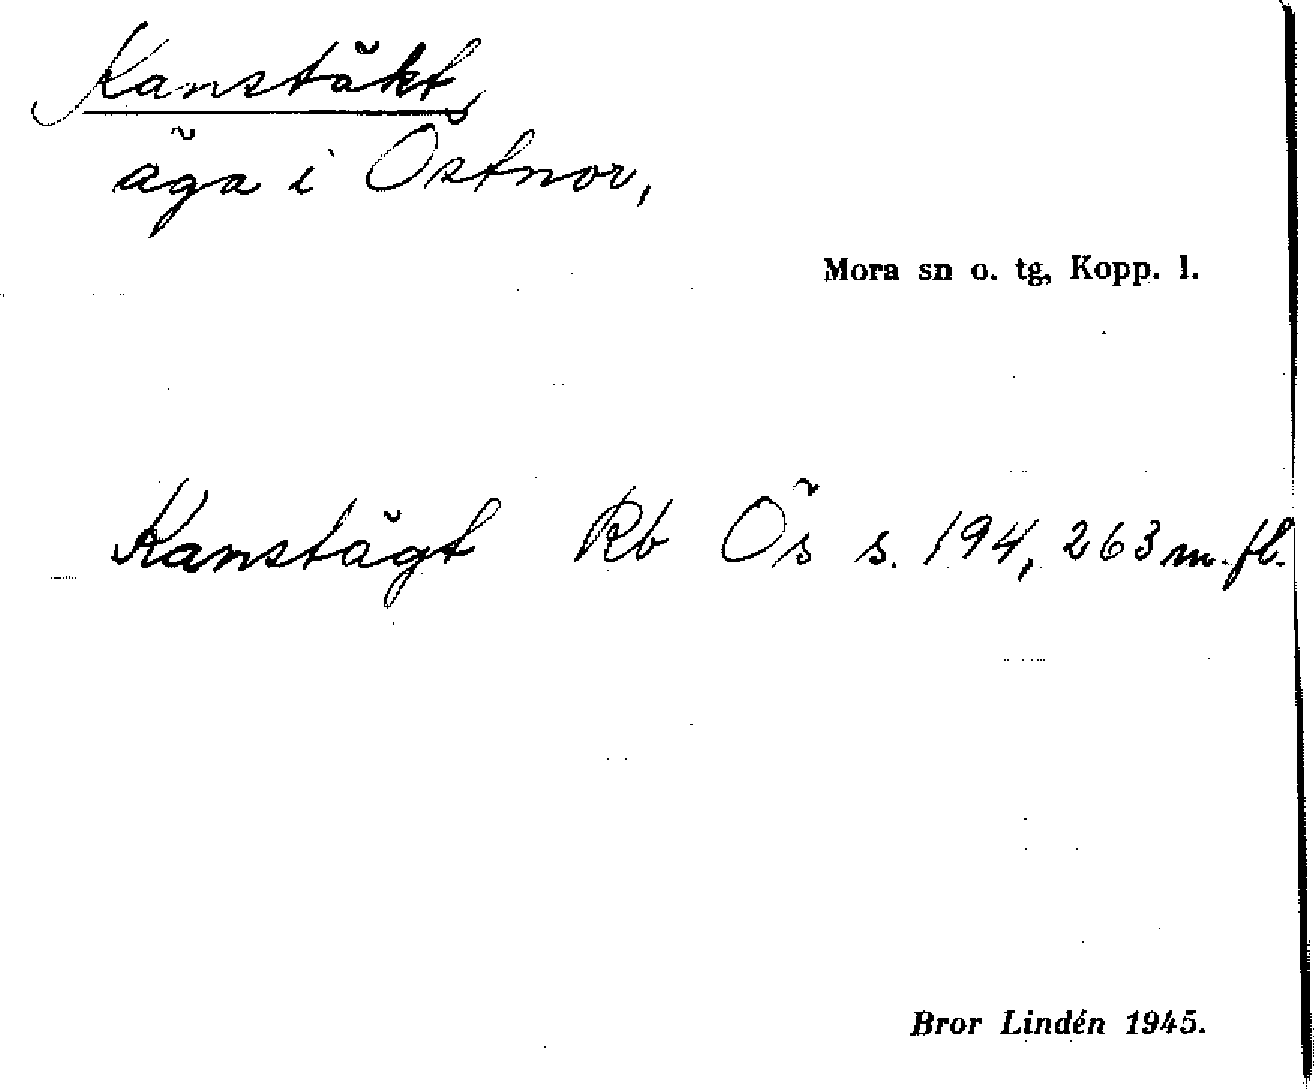 Kanstäkt,
äga i Östnor,
Mora sn o. tg, Kopp. l.
Kanstägt Rb Ös s. 194, 263 m. fl.
Bror Lindén 1945.